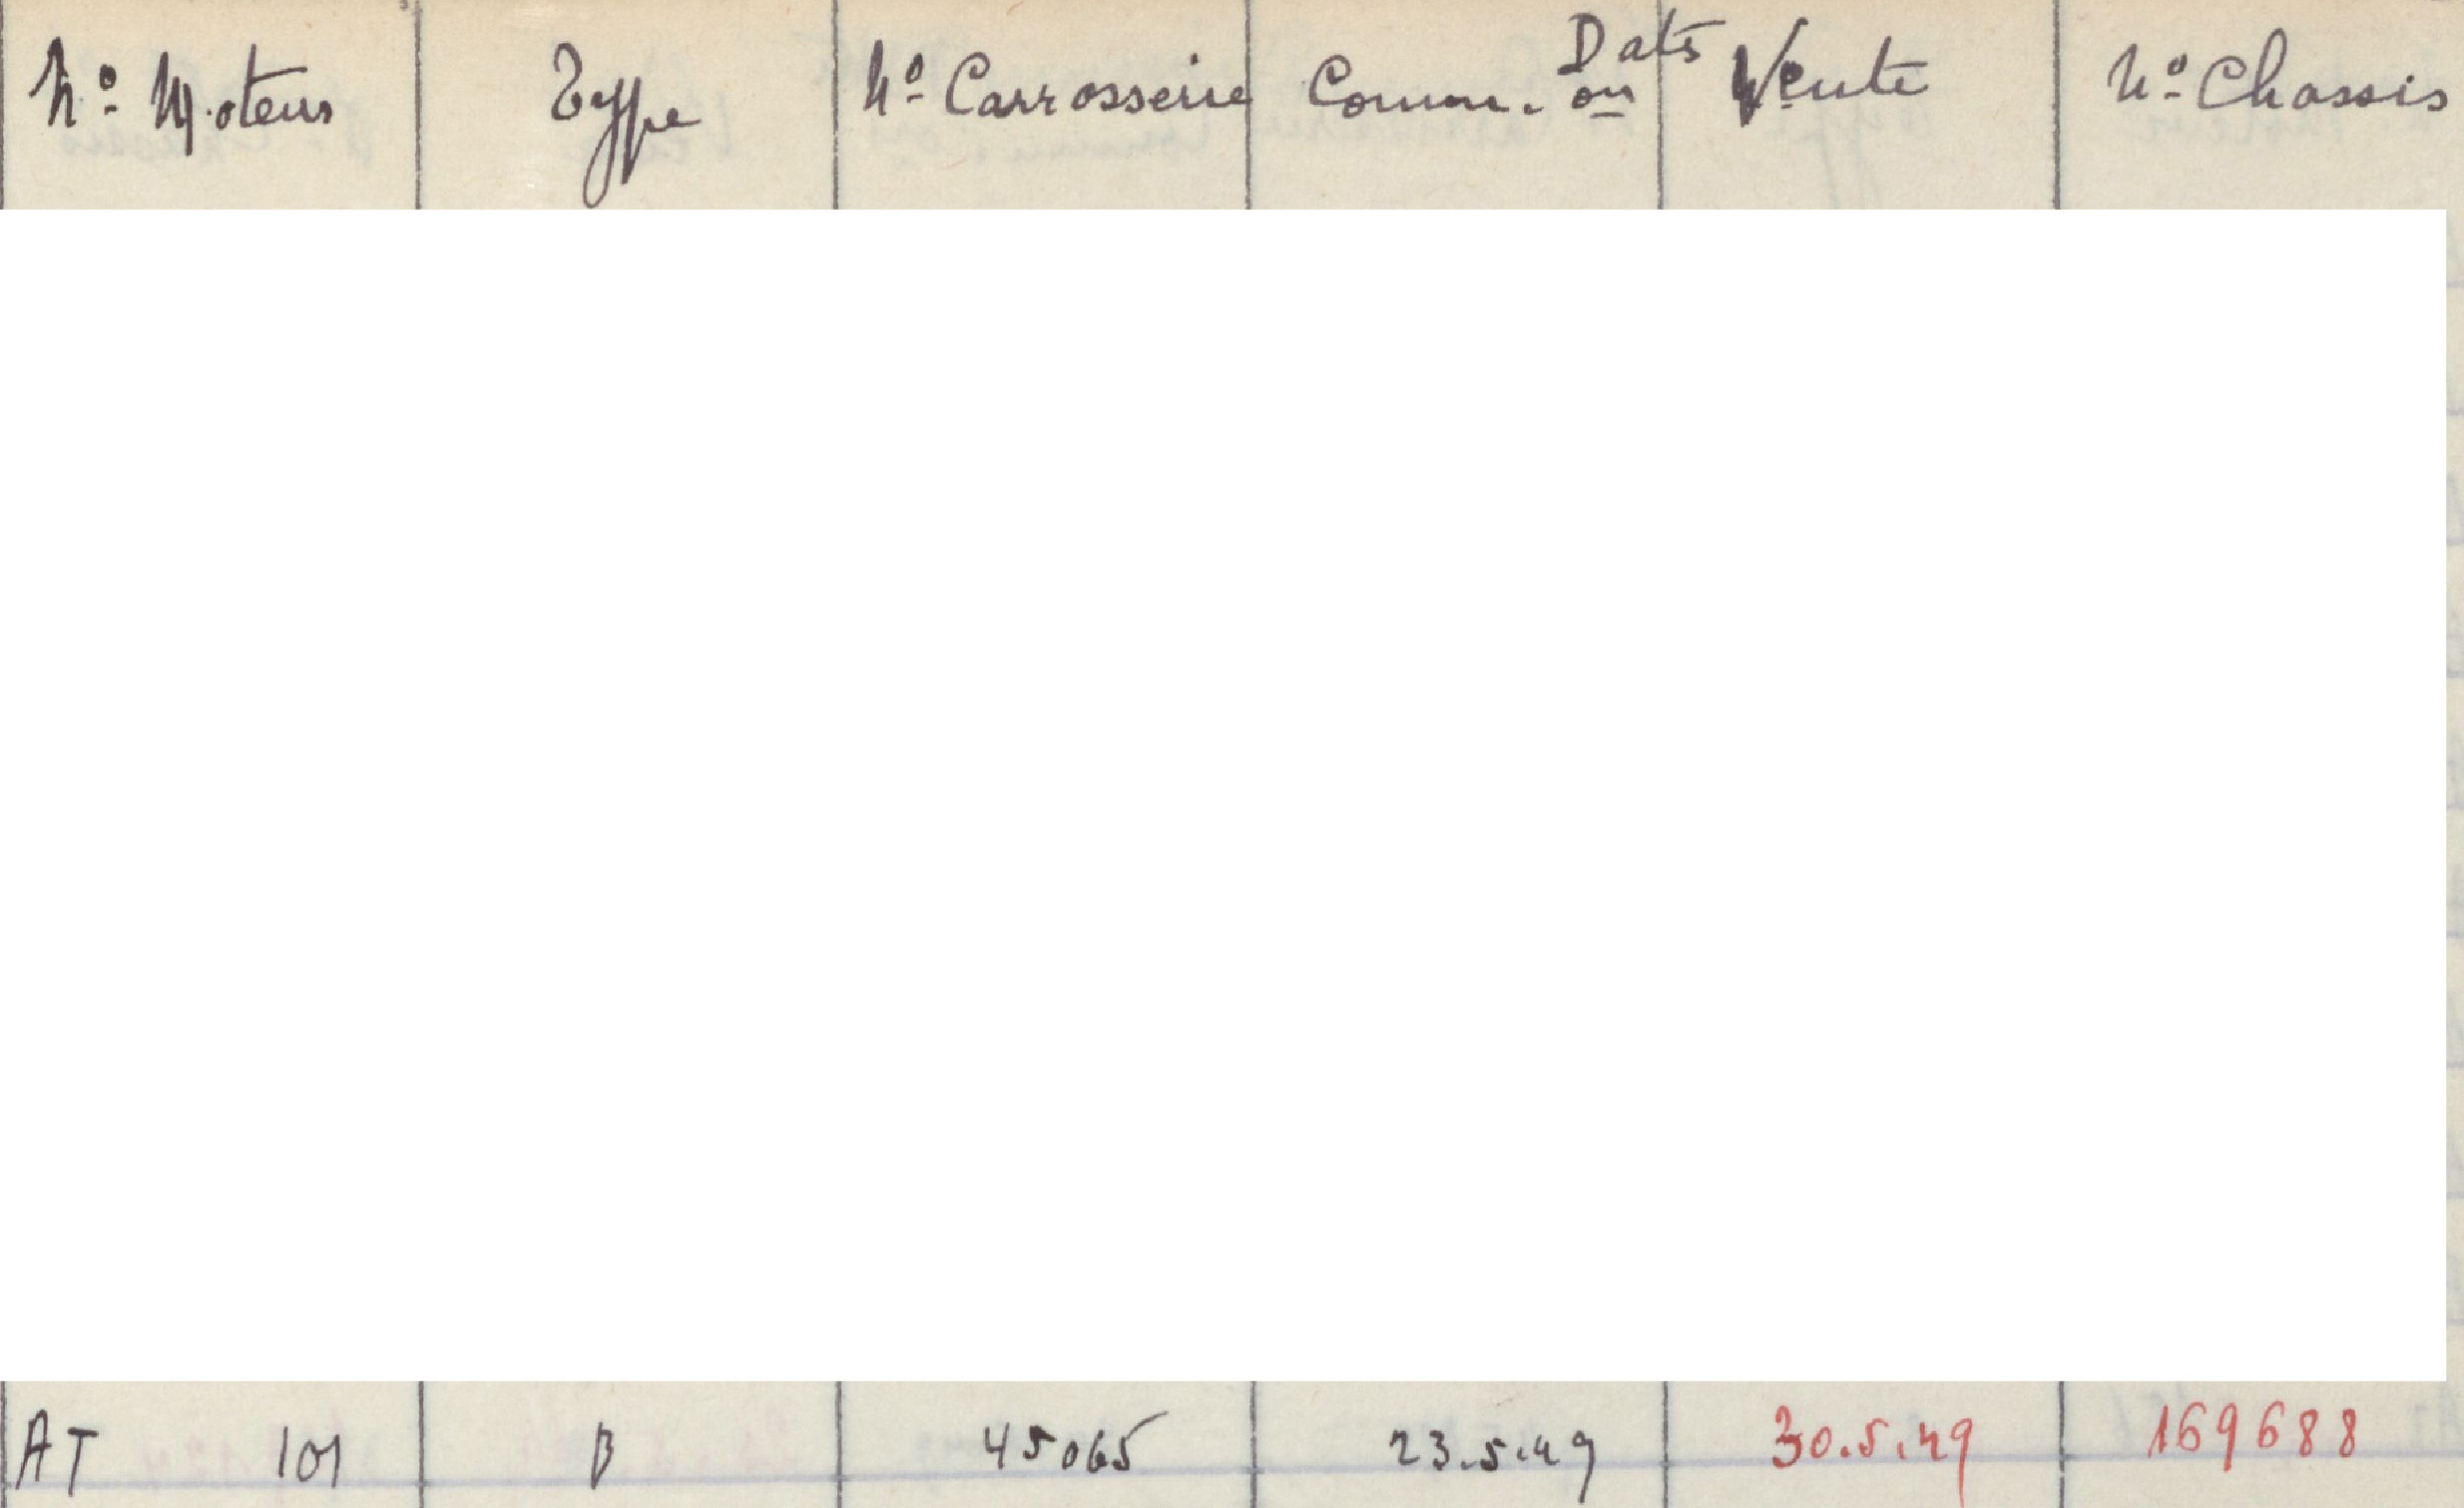 Dats
N° Moteur Type N° Carrosserie Comm. ou Vente N° Chassis
AT 101 B 45065 23.5.49 30.5.49 169688